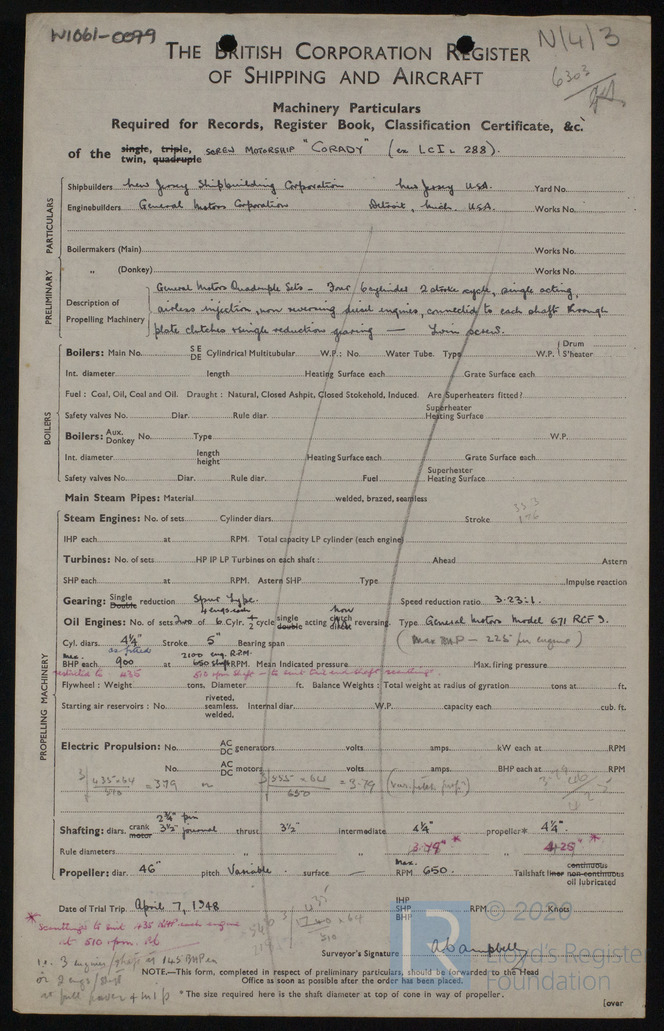 W1061-0079
N/4/3
THE BRITISH CORPORATION REGISTER
OF SHIPPING AND AIRCRAFT
6303
Machinery Particulars
Required for Records, Register Book, Classification Certificate, &c.
of the single, triple, twin, quadruple SCREW MOTORSHIP "CORADY" (ex LCI L 288).
PRELIMINARY PARTICULARS
Shipbuilders New Jersey Shipbuilding Corporation New Jersey U.S.A. Yard No.
Enginebuilders General Motors Corporation Detroit, Mich. U.S.A. Works No.
Boilermakers (Main) Works No.
" (Donkey) Works No.
Description of Propelling Machinery
General Motors Quadruple Sets - Four 6 cylinder 2 stroke cycle, single acting,
airless injection, non reversing diesel engines, connected to each shaft through
plate clutches & single reduction gearing — Twin screw.
BOILERS
Boilers: Main No. SE DE Cylindrical Multitubular W.P.: No. Water Tube. Type W.P. Drum S'heater
Int. diameter length Heating Surface each Grate Surface each
Fuel: Coal, Oil, Coal and Oil. Draught: Natural, Closed Ashpit, Closed Stokehold, Induced. Are Superheaters fitted?
Safety valves No. Diar. Rule diar. Superheater Heating Surface
Boilers: Aux. Donkey No. Type W.P.
Int. diameter length height Heating Surface each Grate Surface each
Safety valves No. Diar. Rule diar. Fuel Superheater Heating Surface
Main Steam Pipes: Material welded, brazed, seamless
PROPELLING MACHINERY
Steam Engines: No. of sets Cylinder diars. Stroke
IHP each at RPM. Total capacity LP cylinder (each engine)
Turbines: No. of sets HP IP LP Turbines on each shaft: Ahead Astern
SHP each at RPM. Astern SHP Type Impulse reaction
Gearing: Single Double reduction Spur type. Speed reduction ratio 3.23:1.
4 engs each
Oil Engines: No. of sets Two of 6 Cylr. 2 cycle single double acting non clutch direct reversing. Type General Motors Model 671 RCF 9.
Cyl. diars. 4¼" Stroke 5" Bearing span (Max BHP - 225 per engine)
as fitted 2100 eng. R.P.M.
max. BHP each 900 at 650 shaft RPM. Mean Indicated pressure Max. firing pressure
restricted to 435 510 rpm shaft - to suit tail end shaft scantlings.
Flywheel: Weight tons, Diameter ft. Balance Weights: Total weight at radius of gyration tons at ft.
Starting air reservoirs: No. riveted, seamless. welded. Internal diar. W.P. capacity each cub. ft.
Electric Propulsion: No. AC DC generators volts amps. kW each at RPM
No. AC DC motors volts amps. BHP each at RPM
3√ 435 × 64 / 510 = 3.79 or 3√ 555 × 64 / 650 = 3.79 (var. pitch prop.)
2¾" pin
Shafting: diars. crank motor 3½" journal thrust 3½" intermediate 4¼" propeller* 4¼".
Rule diameters " " 3.79" * " 4.25" *
Propeller: diar. 46" pitch Variable. surface — Max. RPM 650. Tailshaft liner continuous non-continuous oil lubricated
Date of Trial Trip April 7, 1948 IHP SHP BHP RPM Knots
* Scantlings to suit 435 BHP each engine
at 510 rpm.
i.e. 3 engines/shaft at 145 BHP ea
or 2 engs/shaft
at full power
Surveyor's Signature A Campbell
NOTE.—This form, completed in respect of preliminary particulars, should be forwarded to the Head
Office as soon as possible after the order has been placed.
*The size required here is the shaft diameter at top of cone in way of propeller.
[over
© 2020
Lloyd's Register
Foundation